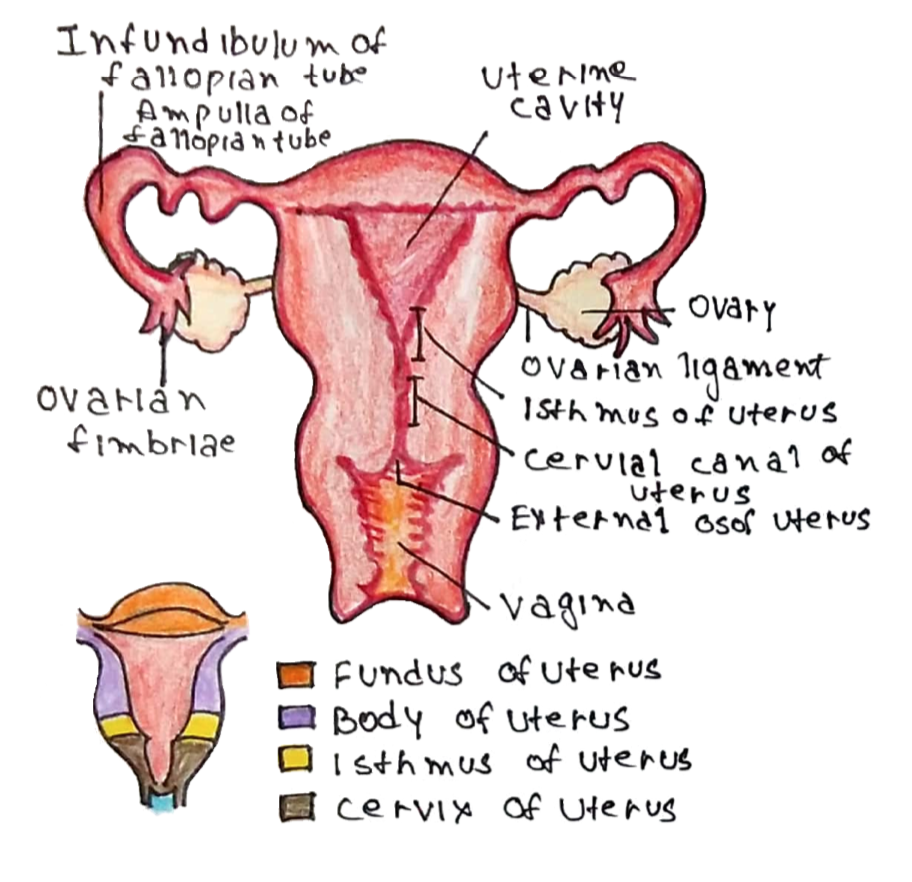 Infundibulum of
fallopian tube
Ampulla of
fallopian tube
Uterine
cavity
Ovary
Ovarian ligament
Isthmus of uterus
Cervial canal of
uterus
External os of uterus
Vagina
Ovarian
fimbriae
Fundus of Uterus
Body of Uterus
Isthmus of uterus
Cervix of Uterus